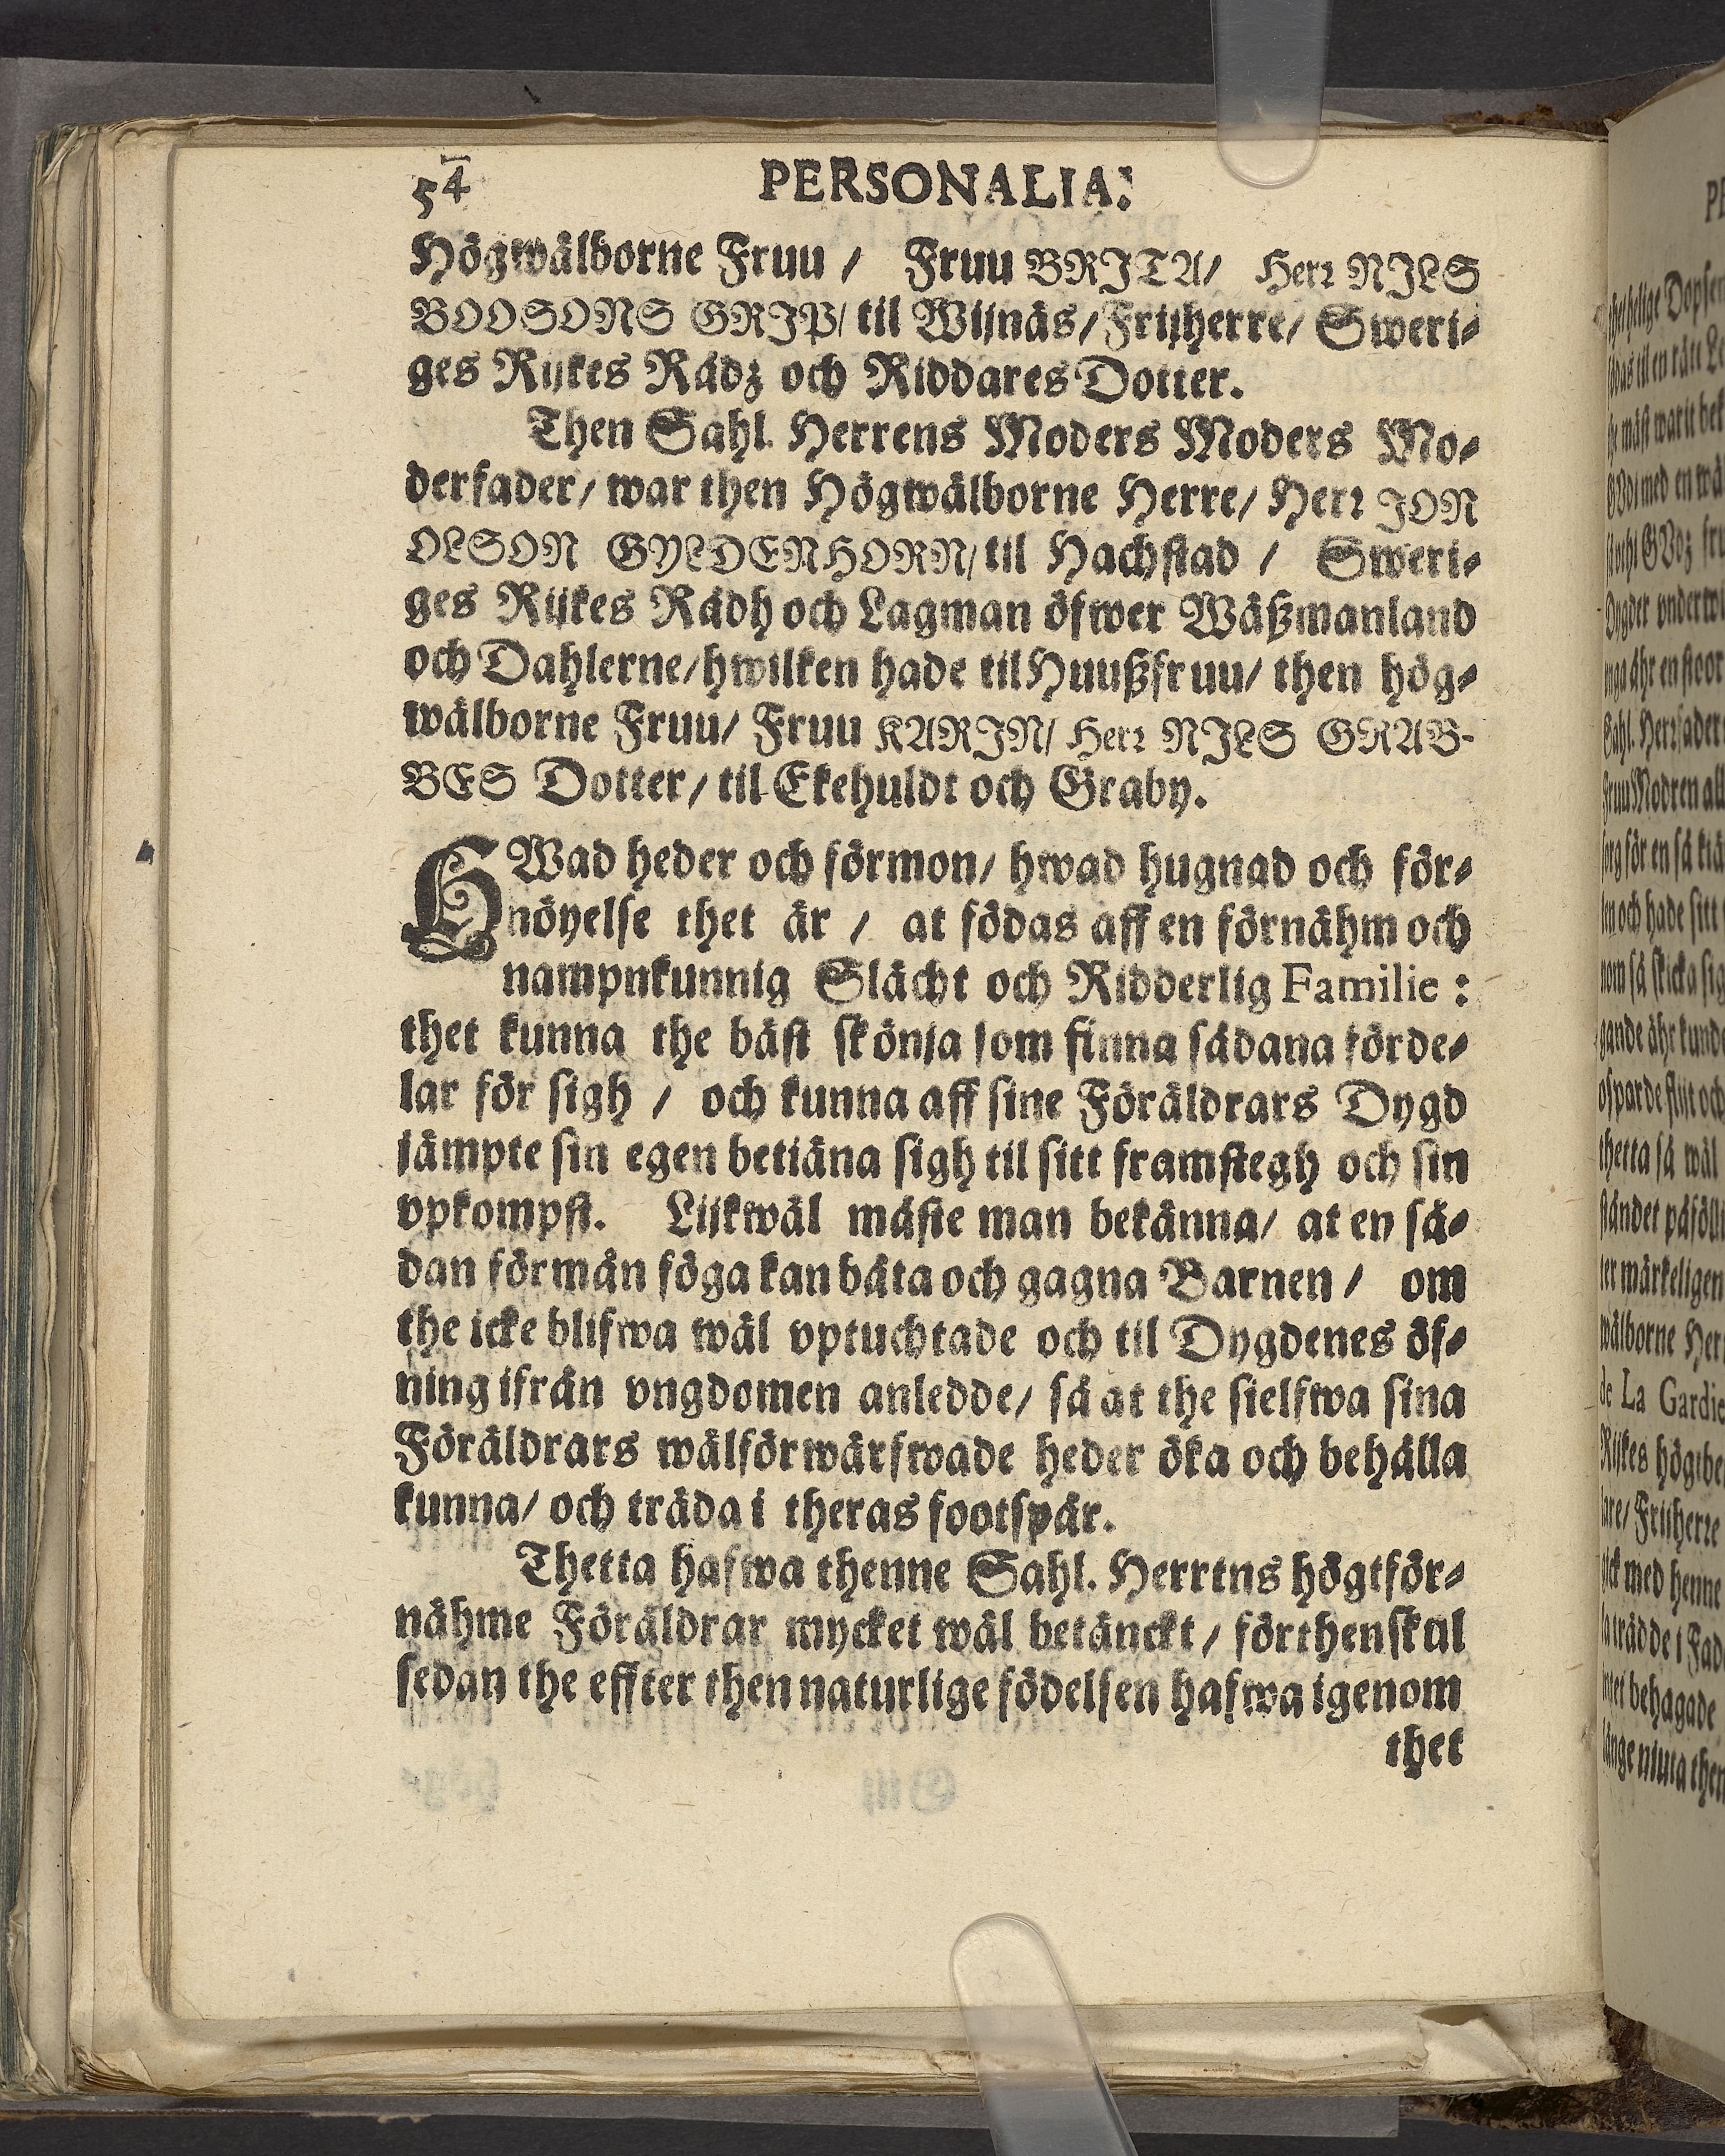 54 PERSONALIA:
Högwälborne Fruu / Fruu BRITA/ Herr NILS
BOOSONS GRIP/ til Wijnäs/ Frijherre/ Sweri-
ges Rijkes Rådz och Riddares Dotter.
Then Sahl. Herrens Moders Moders Mo-
derfader/ war then Högwälborne Herre/ Herr JON
OLSON GYLDENHORN/ til Hachstad / Sweri-
ges Rijkes Rådh och Lagman öfwer Wäßmanland
och Dahlerne/ hwilken hade til Huußfruu/ then hög-
wälborne Fruu/ Fruu KARIN/ Herr NILS GRAB-
BES Dotter/ til Ekehuldt och Graby.
HWad heder och förmon/ hwad hugnad och för-
nöyelse thet är / at födas aff en förnähm och
nampnkunnig Slächt och Ridderlig Familie :
thet kunna the bäst skönja som finna sådana förde-
lar för sigh / och kunna aff sine Föräldrars Dygd
jämpte sin egen betiäna sigh til sitt framstegh och sin
vpkompst. Lijkwäl måste man bekänna/ at en så-
dan förmån föga kan båta och gagna Barnen / om
the icke blifwa wäl vptuchtade och til Dygdenes öf-
ning ifrån vngdomen anledde/ så at the sielfwa sina
Föräldrars wälförwärfwade heder öka och behålla
kunna/ och träda i theras footspår.
Thetta hafwa thenne Sahl. Herrens högtför-
nähme Föräldrar mycket wäl betänckt / förthenskul
sedan the effter then naturlige födelsen hafwa igenom
thet